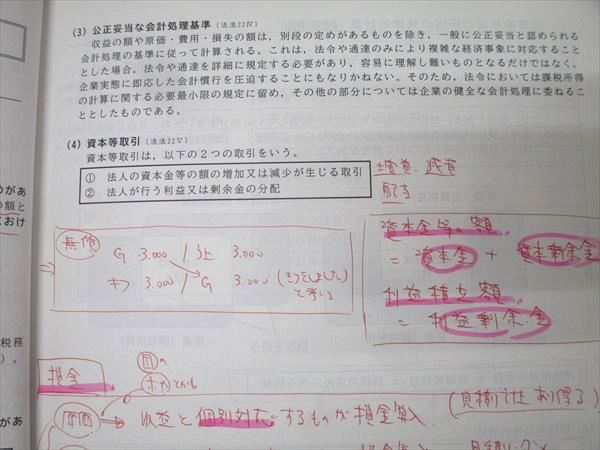 (3) 公正妥当な会計処理基準 (法法22Ⅳ)
収益の額や原価・費用・損失の額は，別段の定めがあるものを除き，一般に公正妥当と認められる
会計処理の基準に従って計算される。これは，法令や通達のみにより複雑な経済事象に対応すること
とした場合，法令や通達を詳細に規定する必要があり，容易に理解し難いものとなるだけではなく，
企業実態に即応した会計慣行を圧迫することにもなりかねない。そのため，法令においては課税所得
の計算に関する必要最小限の規定に留め，その他の部分については企業の健全な会計処理に委ねるこ
ととしたものである。
(4) 資本等取引 (法法22Ⅴ)
資本等取引は，以下の2つの取引をいう。
① 法人の資本金等の額の増加又は減少が生じる取引
② 法人が行う利益又は剰余金の分配
増資、減資
配当
資本金等の額
= 資本金 + 資本剰余金
利益積立額
= 利益剰余金
無償
G 3.000 / 売上 3.000
キフ 3.000 / G 3.000
と考える
損金
原価 → 収益と個別対応するものが損金算入
(見積り計上あり得る)
のがあ
の額と
におけ
税務
)。
があ